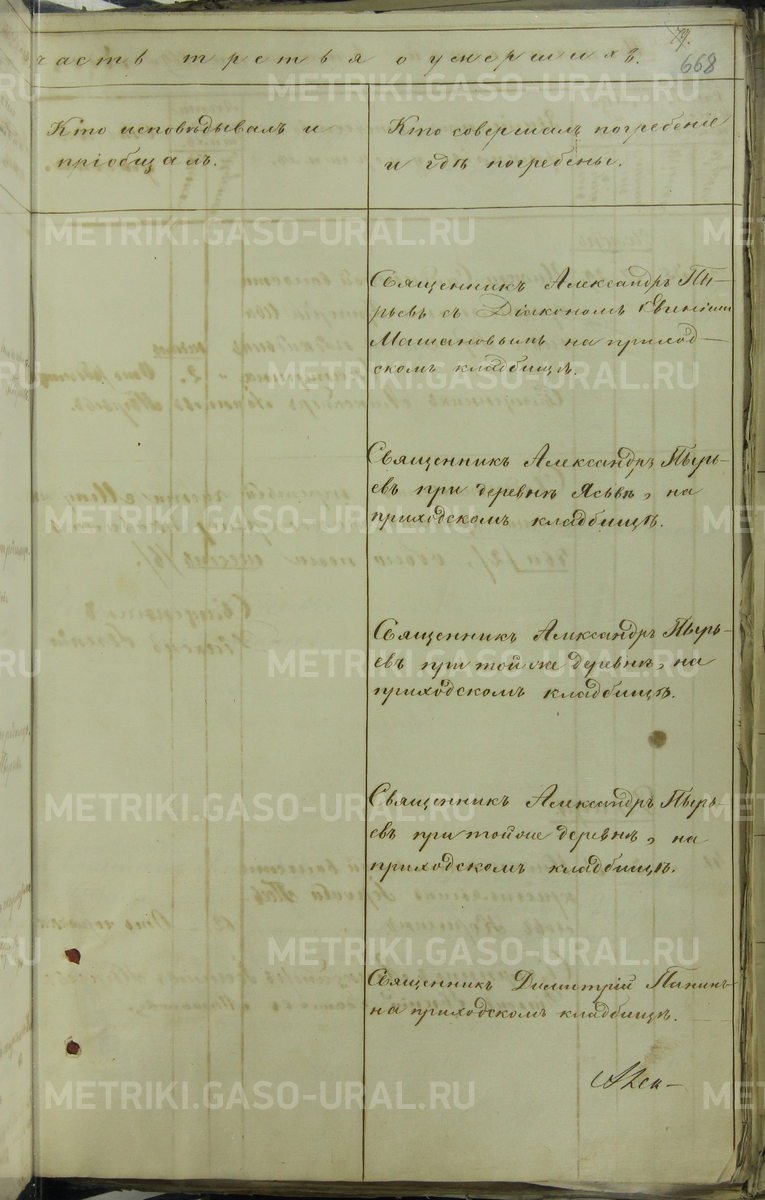 79.
668
часть третья о умершихъ.
Кто исповѣдывалъ и
пріобщалъ.
Кто совершалъ погребеніе
и гдѣ погребены.
Священникъ Александръ Пы-
рьевъ съ Діакономъ
на приход-
скомъ кладбищѣ.
Священникъ Александръ Пырь-
евъ при деревнѣ Ясьвѣ, на
приходскомъ кладбищѣ.
Священникъ Александръ Пырь-
евъ при той же деревнѣ, на
приходскомъ кладбищѣ.
Священникъ Александръ Пырь-
евъ при тойже деревнѣ, на
приходскомъ кладбищѣ.
Священникъ Димитрій Папинъ
на приходскомъ кладбищѣ.
METRIKI.GASO-URAL.RU